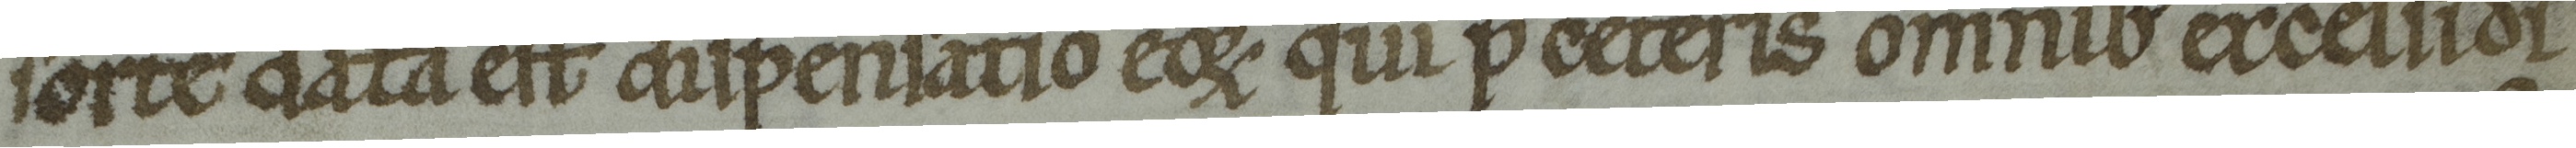 sorte data est dispensatio eoꝝ qui p ceteris omnib excelliori